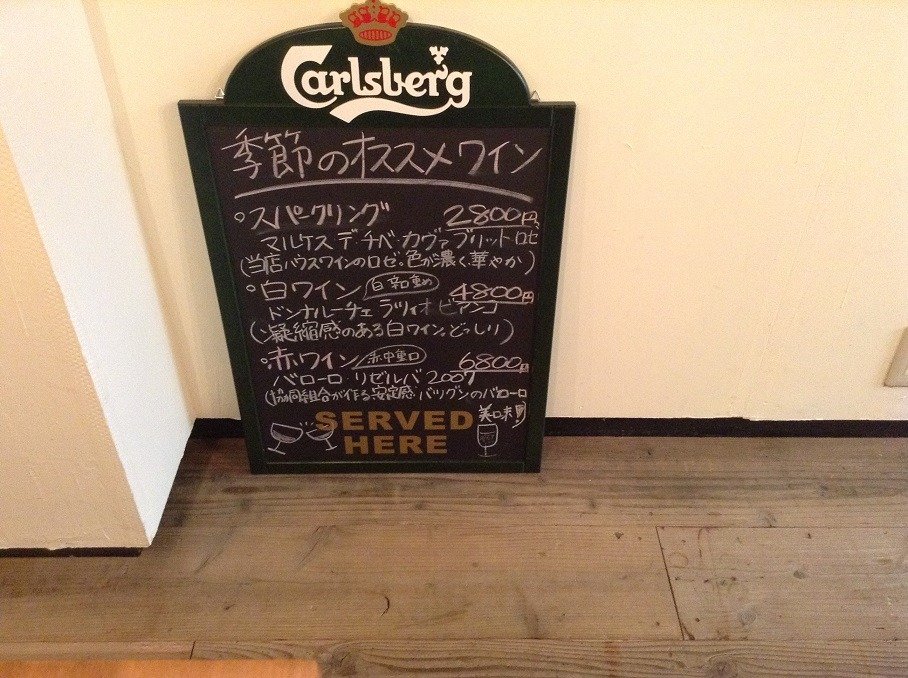 Carlsberg
季節のオススメワイン
・スパークリング 2800円
マルケス デ・チベ・カヴァ ブリット ロゼ
(当店ハウスワインのロゼ。色が濃く華やか)
・白ワイン 白辛口重め 4800円
ドンナルーチェ ラツィオ ビアンコ
(凝縮感のある白ワイン。どっしり)
・赤ワイン 赤中重口 6800円
バローロ リゼルバ 2007
(協同組合が作る安定感・バツグンのバローロ
美味町
SERVED
HERE